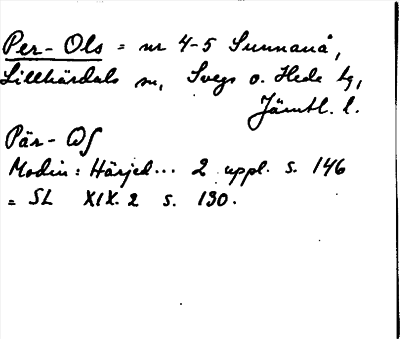 Per-Ols = nr 4-5 Sunnanå,
Lillhärdals sn, Svegs o. Hede tg,
Jämtl. l.
Pär-Ols
Modin: Härjed... 2 uppl. s. 146
= SL XIX. 2 s. 130.